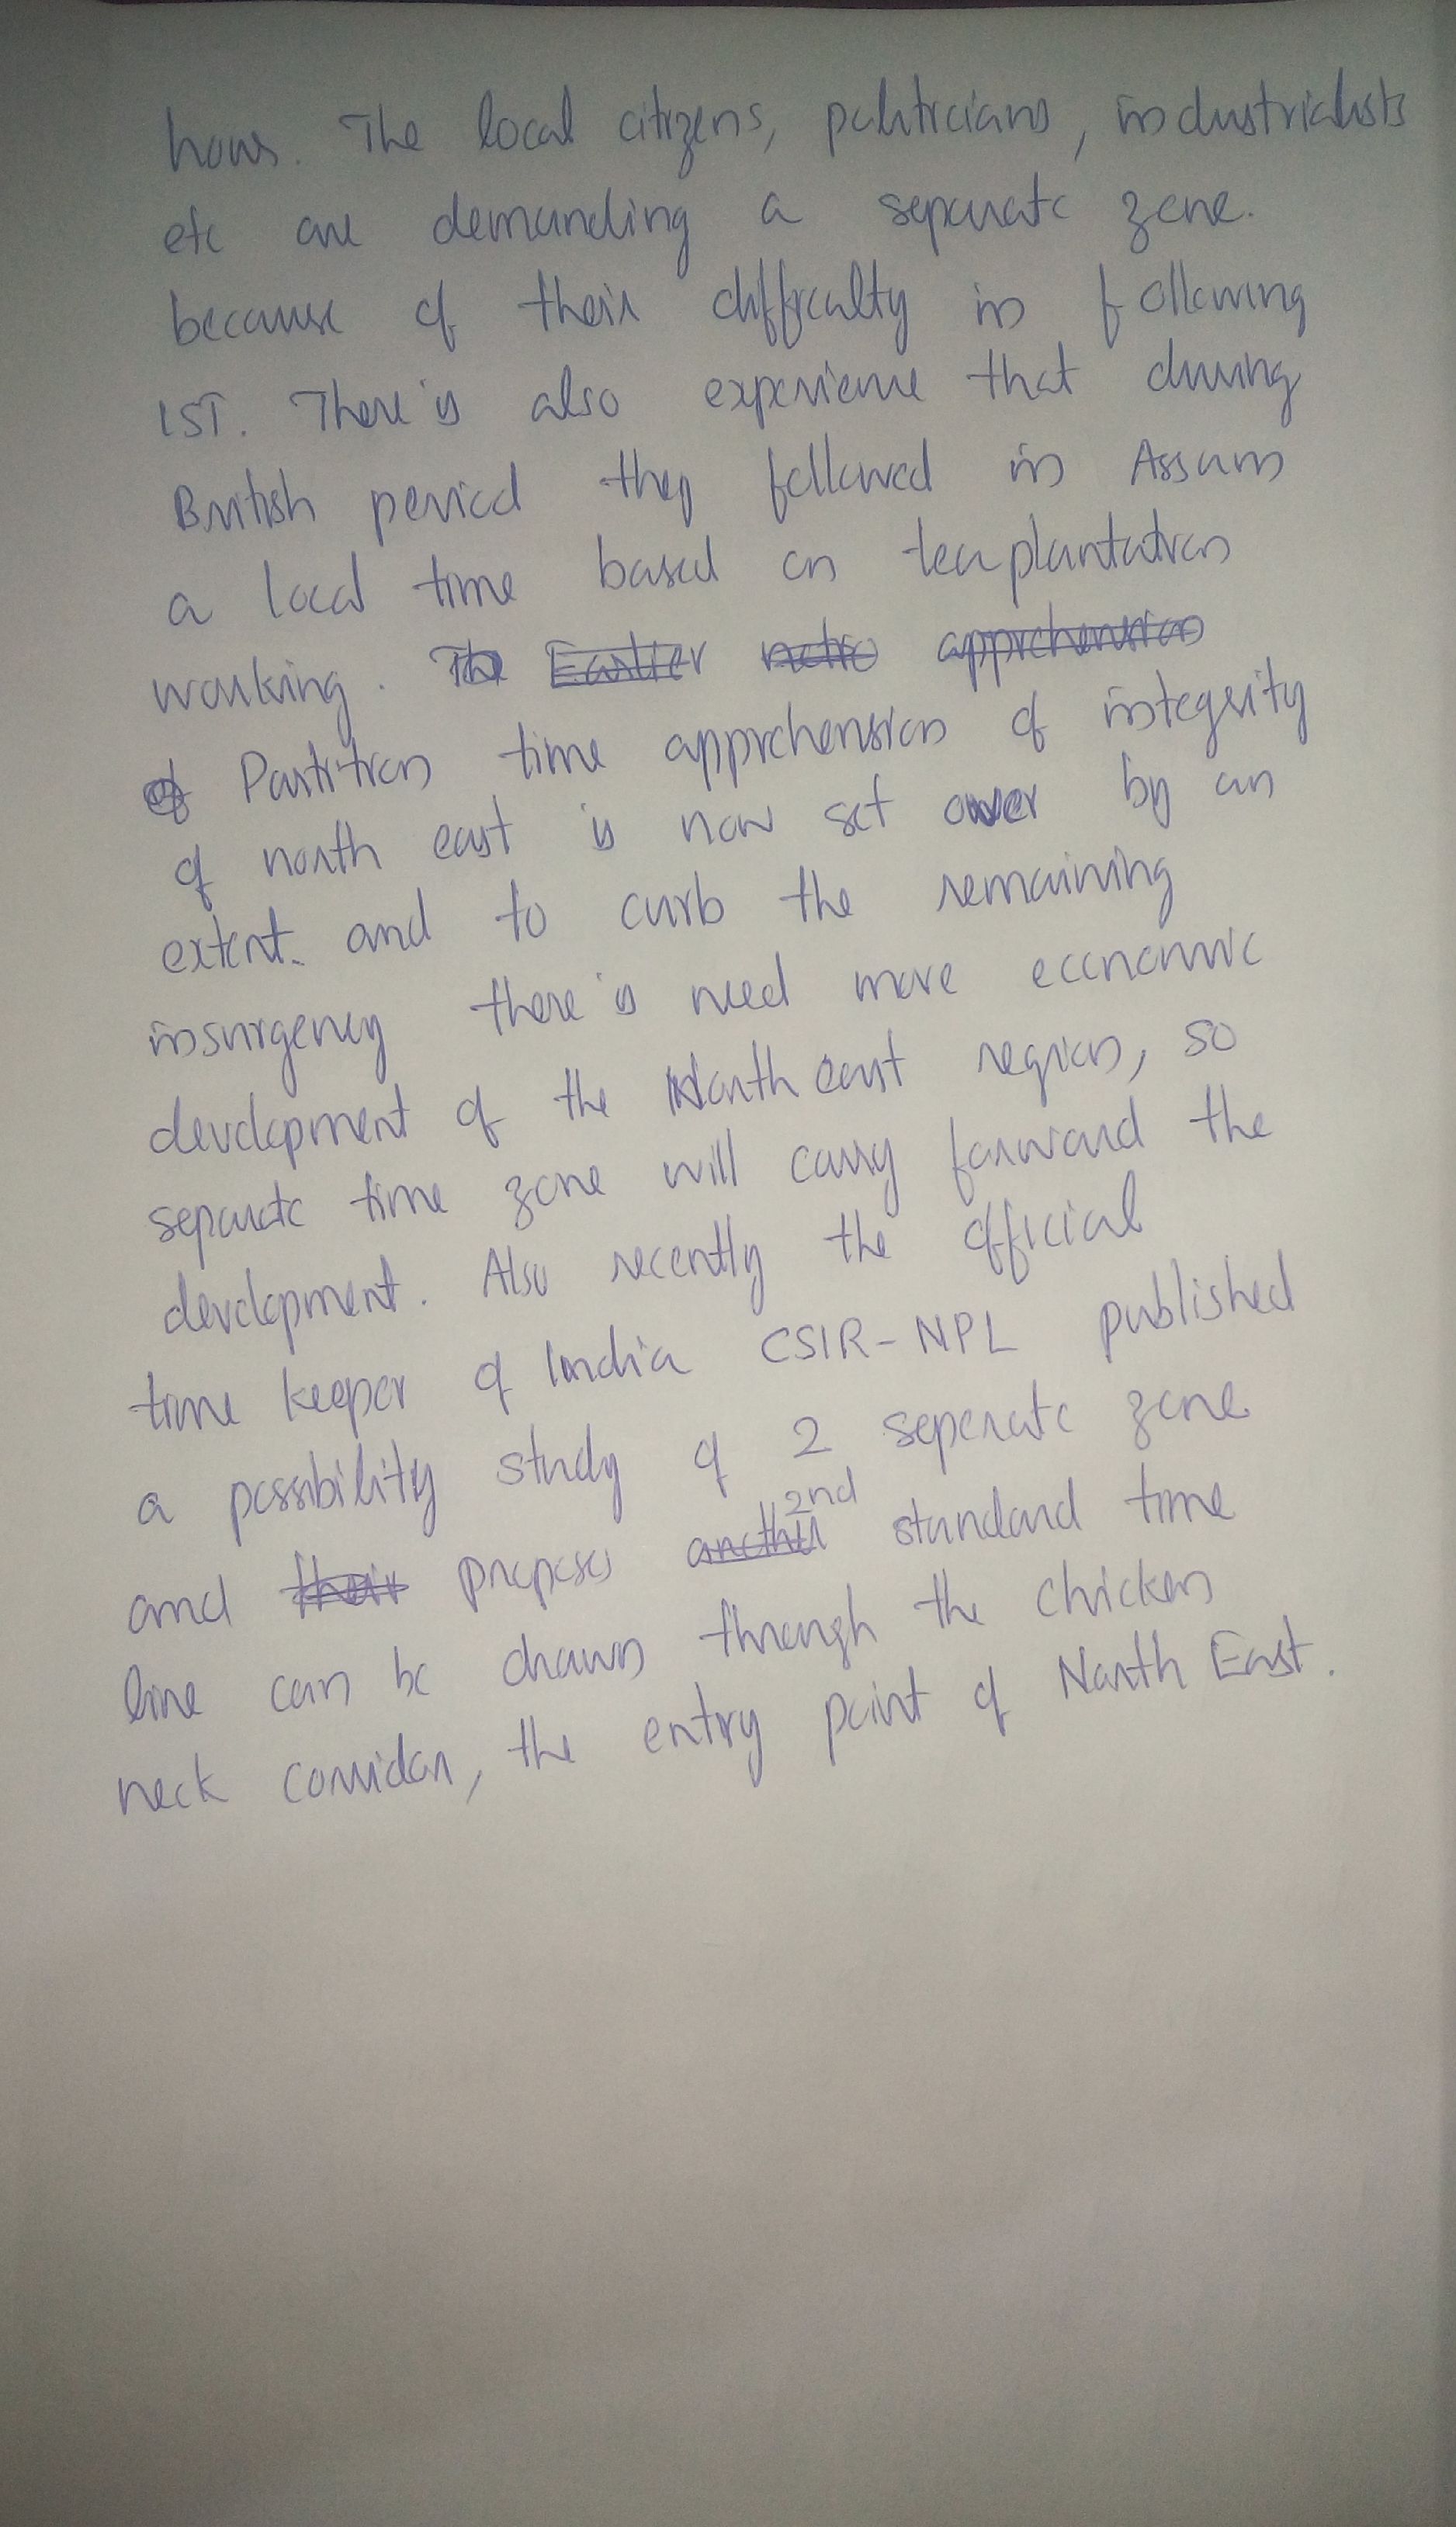 hours. The local citizens, politicians, industrialists
etc are demanding a separate zone.
because of their difficulty in following
IST. There is also experience that during
British period they followed in Assam
a local time based on tea plantation
working. The Earlier notio apprehension
of Partition time apprehension of integrity
of north east is now set over by an
extent. and to curb the remaining
insurgency there is need more economic
development of the North east region, so
separate time zone will carry forward the
development. Also recently the official
time keeper of India CSIR-NPL published
a possibility study of 2 seperate zone
and their proposes another 2nd standard time
line can be drawn through the chicken
neck corridor, the entry point of North East.